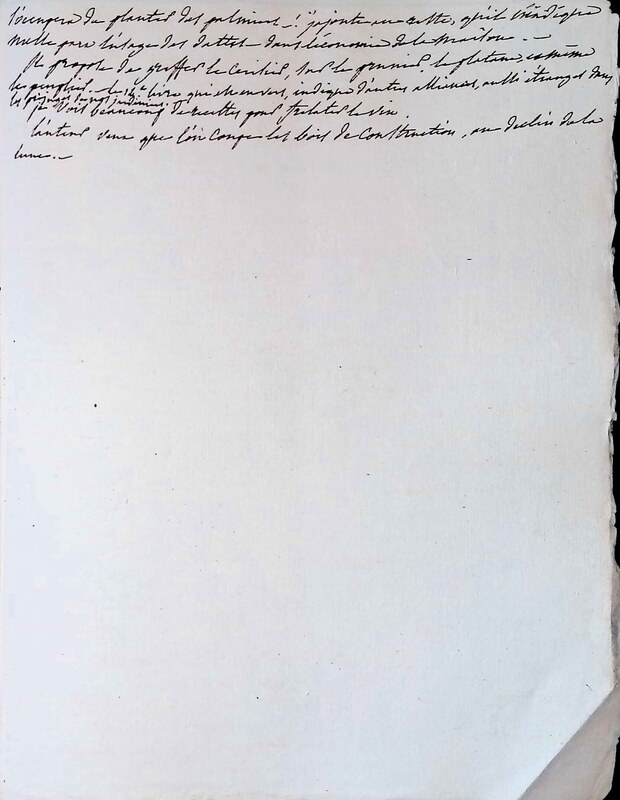 s'occupera de planter des palmiers ! j'ajoute au reste, qu'il n'indique
nulle part l'usage des dattes dans l'économie de la maison. -
Il propose de greffer le cerisier, sur le prunier, le platane, et même
le peuplier. - le 14e livre qui est en vers, indique d'autres alliances, aussi étranges dans
les principes de nos jardiniers.
je vois beaucoup de recettes pour frelater le vin.
l'auteur veut que l'on coupe les bois de construction, au déclin de la
lune. -